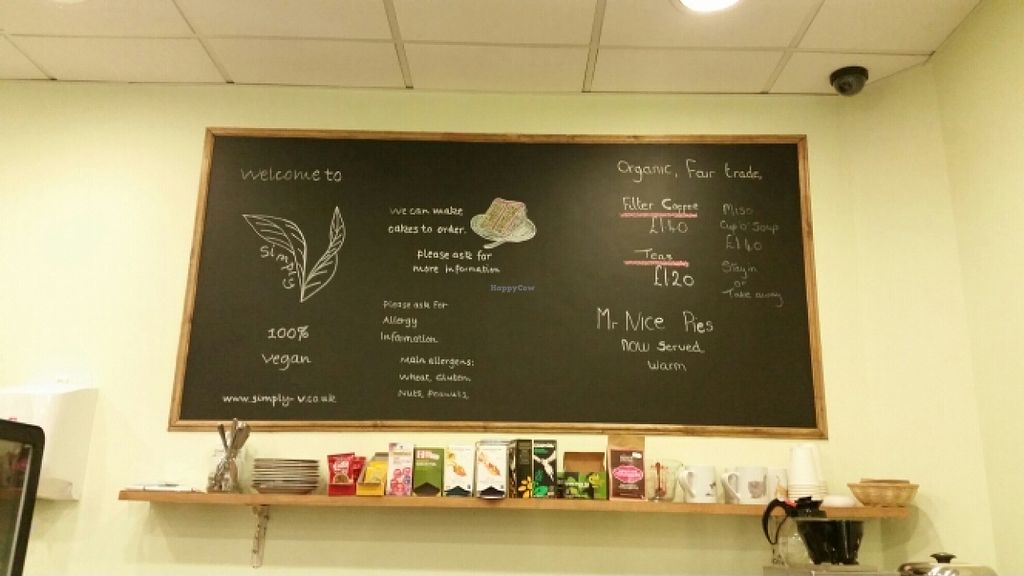 welcome to
Simply
100%
vegan
www.simply-v.co.uk
we can make
cakes to order.
Please ask for
more information
Please ask for
Allergy
Information
Main allergens:
Wheat, Gluten,
Nuts, Peanuts,
Organic, Fair trade,
Filter Coffee
£1.40
Teas
£1.20
Miso
Cup o' Soup
£1.40
Stay in
or
Take away
Mr Nice Pies
now served
warm
HappyCow